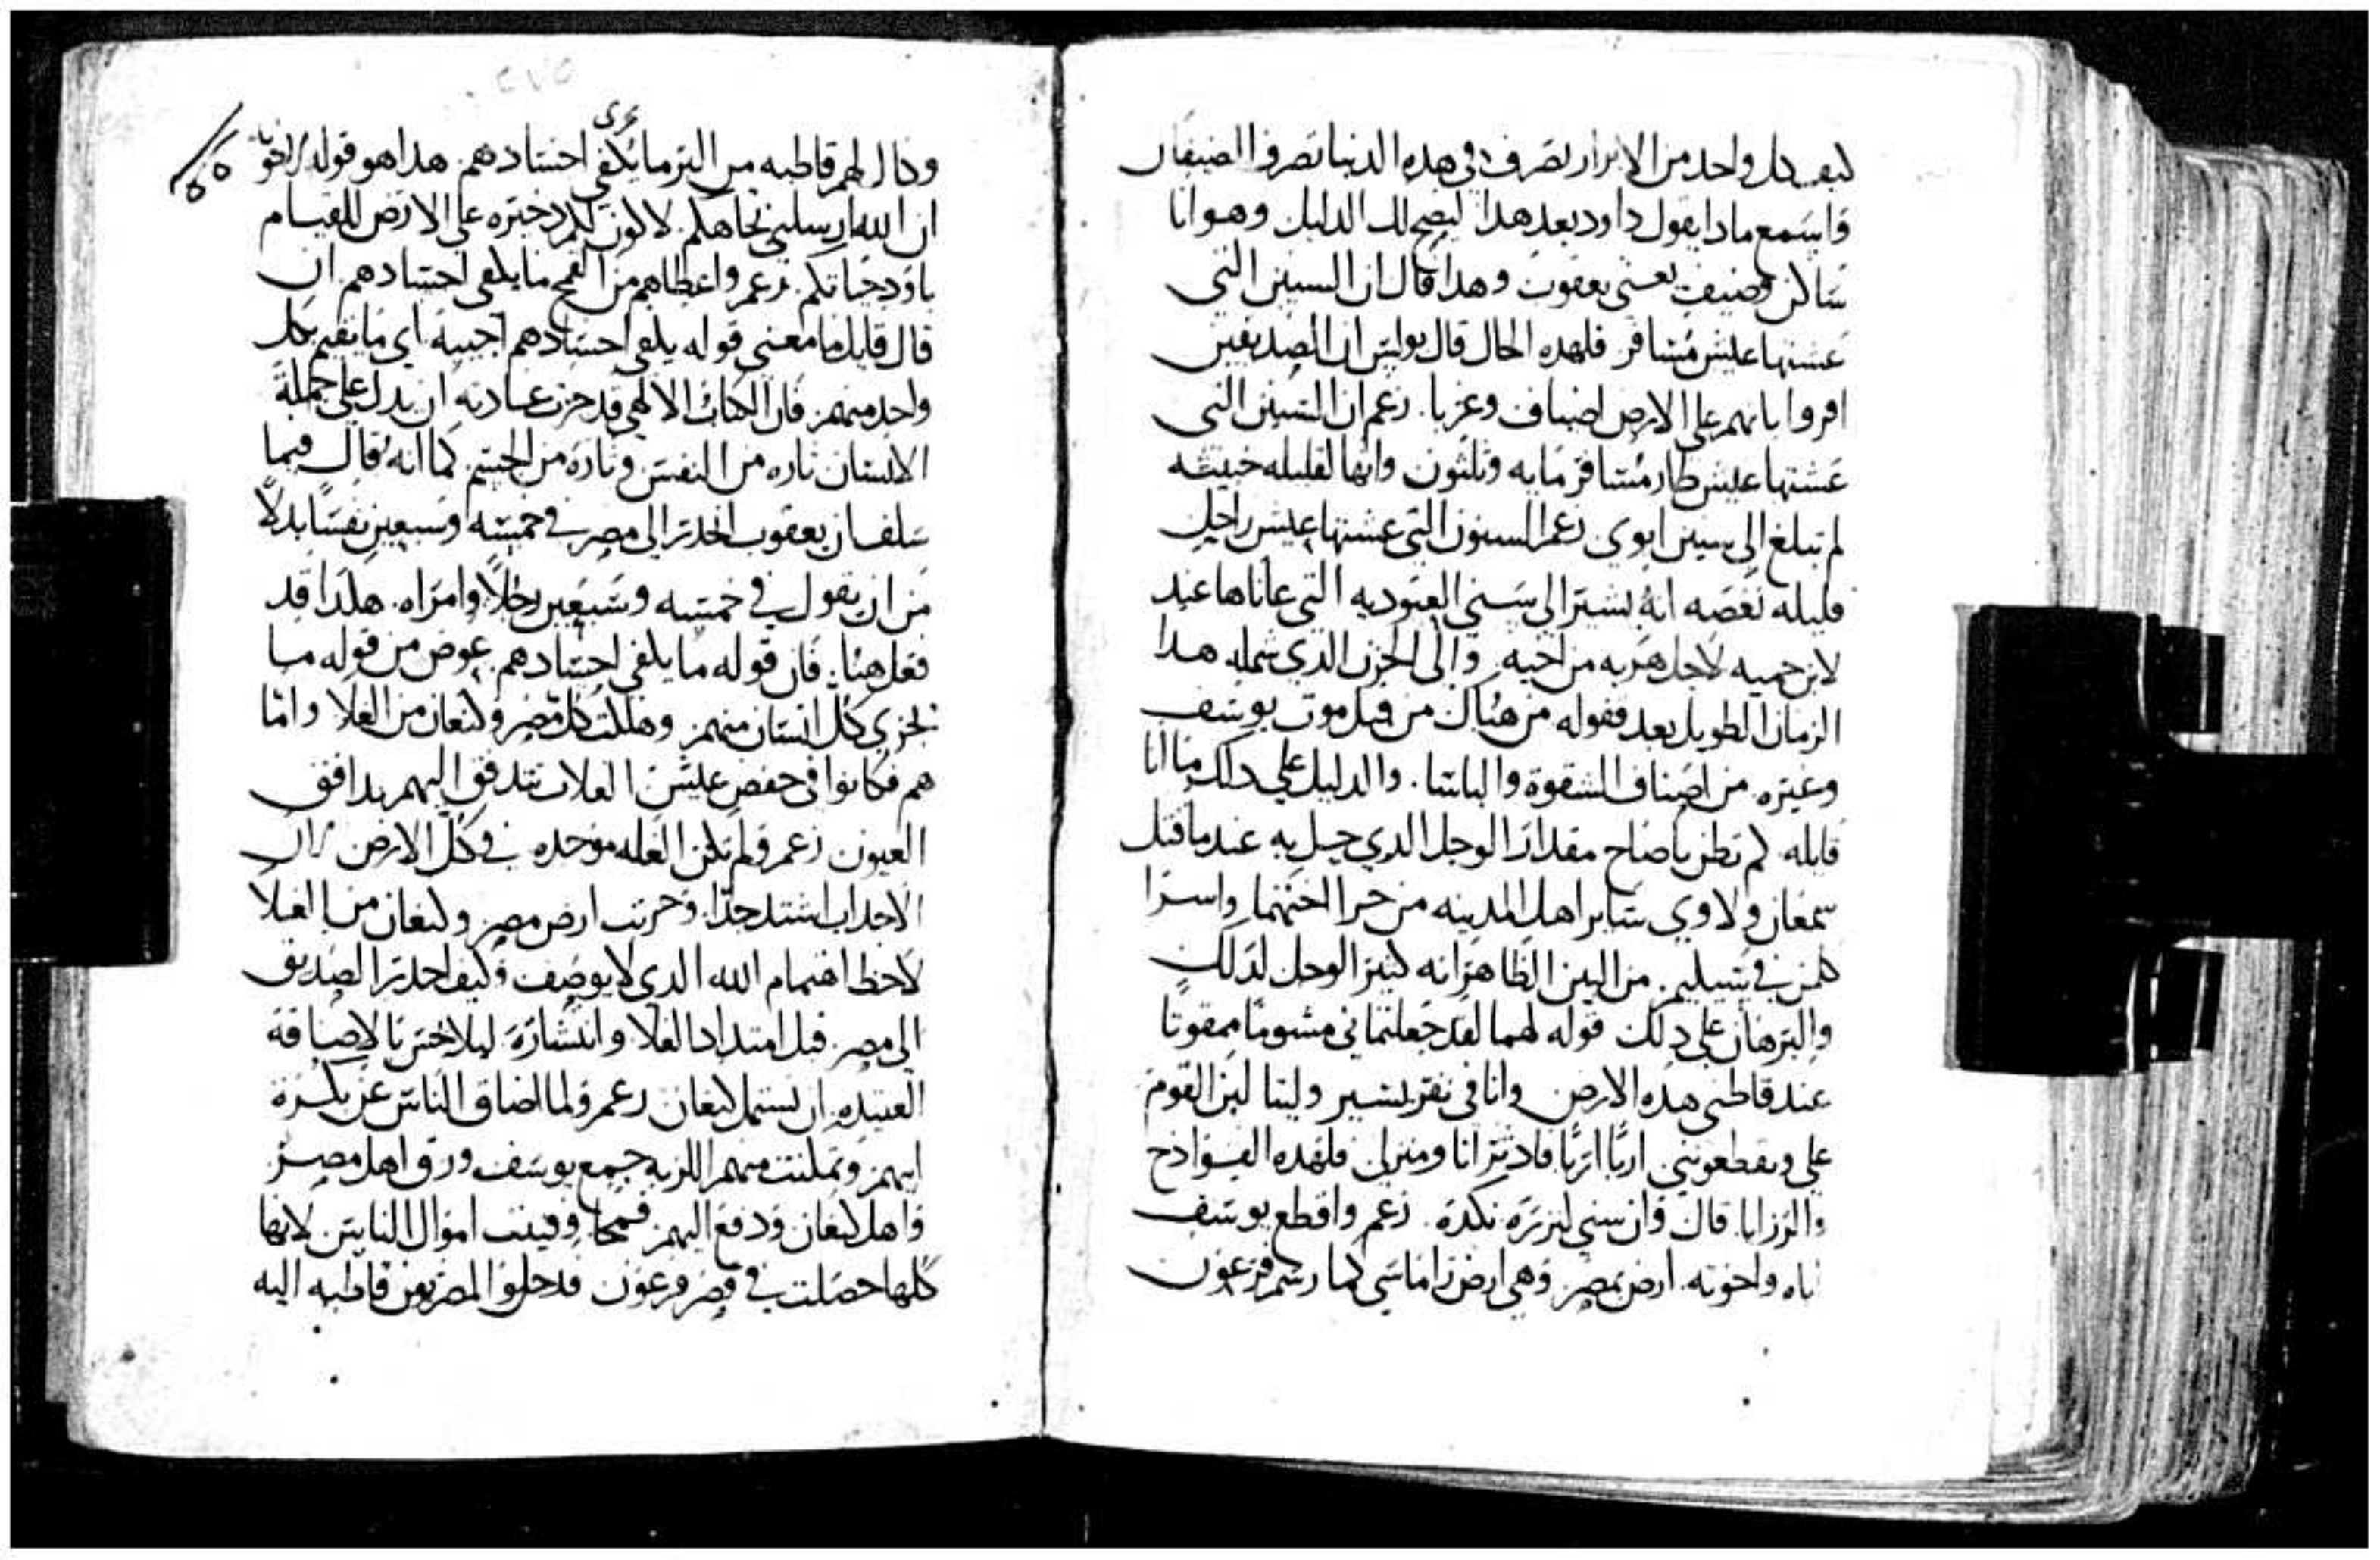 كيف كل واحد من الابرار تصرف في هذه الدنيا تصرف الضيفان
واسمع ماذا يقول داود بعد هذا ليصح لك الدليل وهو انا
ساكن وضيف يعني يعقوب وهذا قال ان السنين التي
عشتها عيش مسافر فلهذه الحال قال بولس ان الصديقين
اقروا بانهم على الارض اضياف وغربا. زعم ان السنين التي
عشتها عيش طار مسافر مايه وثلثون وانها لقليله خبيثه
لم تبلغ الى سنين ابوي زعم السنون التي عشتها عيش راحل
قليله نغصه انه يشير الى سني العبوديه التي عاناها عند
لابن حميه لاجل هربه من اخيه والى الحزن الذي شمله هذا
الزمان الطويل بعد قفوله من هناك من قبل موت يوسف
وغيره من اصناف الشقوة والباسا. والدليل على ذلك ما انا
قايله كم تظن ياصاح مقدار الوجل الذي حل به عند ما قتل
سمعان ولاوي ساير اهل المدينه من جرا اختهما واسرا
كلمن في سيليم. من البين الظاهر انه كثير الوجل لذلك
والبرهان على ذلك قوله لهما لقد جعلتماني مشوما ممقوتا
عند قاطني هذه الارض وانا في نفر يسير ولينا لين القوم
علي ويقطعونني اربا اربا فادثر انا ومنزلي فلهذه الفوادح
والرزايا قال وان سني لنزره نكدة. زعم واقطع يوسف
اباه واخوته ارض بمصر وهي ارض راماسي كما رسم فرعون
وكال لهم قاطبه من البر ما يكفي اجسادهم هذا هو قوله لاخوته
ان الله ارسلني تجاهكم لاكون لكم دخيره على الارض للقيام
باود حياتكم. زعم واعطاهم من القمح ما يكفي اجسادهم ان
قال قايل ما معنى قوله يكفي اجسادهم اجيبه اي ما يقيم بكل
واحد منهم فان الكتاب الالهي قد جرت عادته ان يدل على جملة
الانسان تاره من النفس وتارة من الجسم كما انه قال فيما
سلف ان يعقوب انحدر الى مصر في خمسه وسبعين نفسا بدلا
من ان يقول في خمسه وسبعين رجلا وامراه. هكذا قد
فعل هنا. فان قوله ما يكفي اجسادهم عوض من قوله ما
يجزي كل انسان منهم وهلكت كل مصر وكنعان من الغلا واما
هم فكانوا في خفض عيش الغلات تتدفق اليهم تدافق
العيون زعم ولم تكن الغله موجده في كل الارض لان
الاجداب اشتد جدا. وخربت ارض مصر وكنعان من الغلا
لاحظ اهتمام الله الذي لا يوصف وكيف احدر الصديق
الى مصر قبل امتداد الغلا وانتشاره ليلا
العتيده ان تشمل كنعان زعم ولما انضاف الناس عن بكرة
ابيهم وتمكنت منهم اللزبه جمع يوسف ورق اهل مصر
واهل كنعان ودفع اليهم قمحا وفنيت اموال الناس لانها
كلها حصلت في قصر فرعون فدخلوا المصريون قاطبه اليه